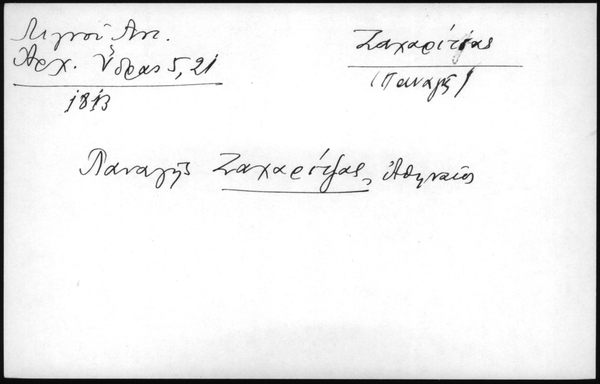 Λιγνοῦ Ἀντ.
Ἀρχ. Ὕδρας 5, 21
1813
Ζαχαρίτζας
(Παναγῆς)
Παναγῆς Ζαχαρίτζας, Ἀθηναῖος